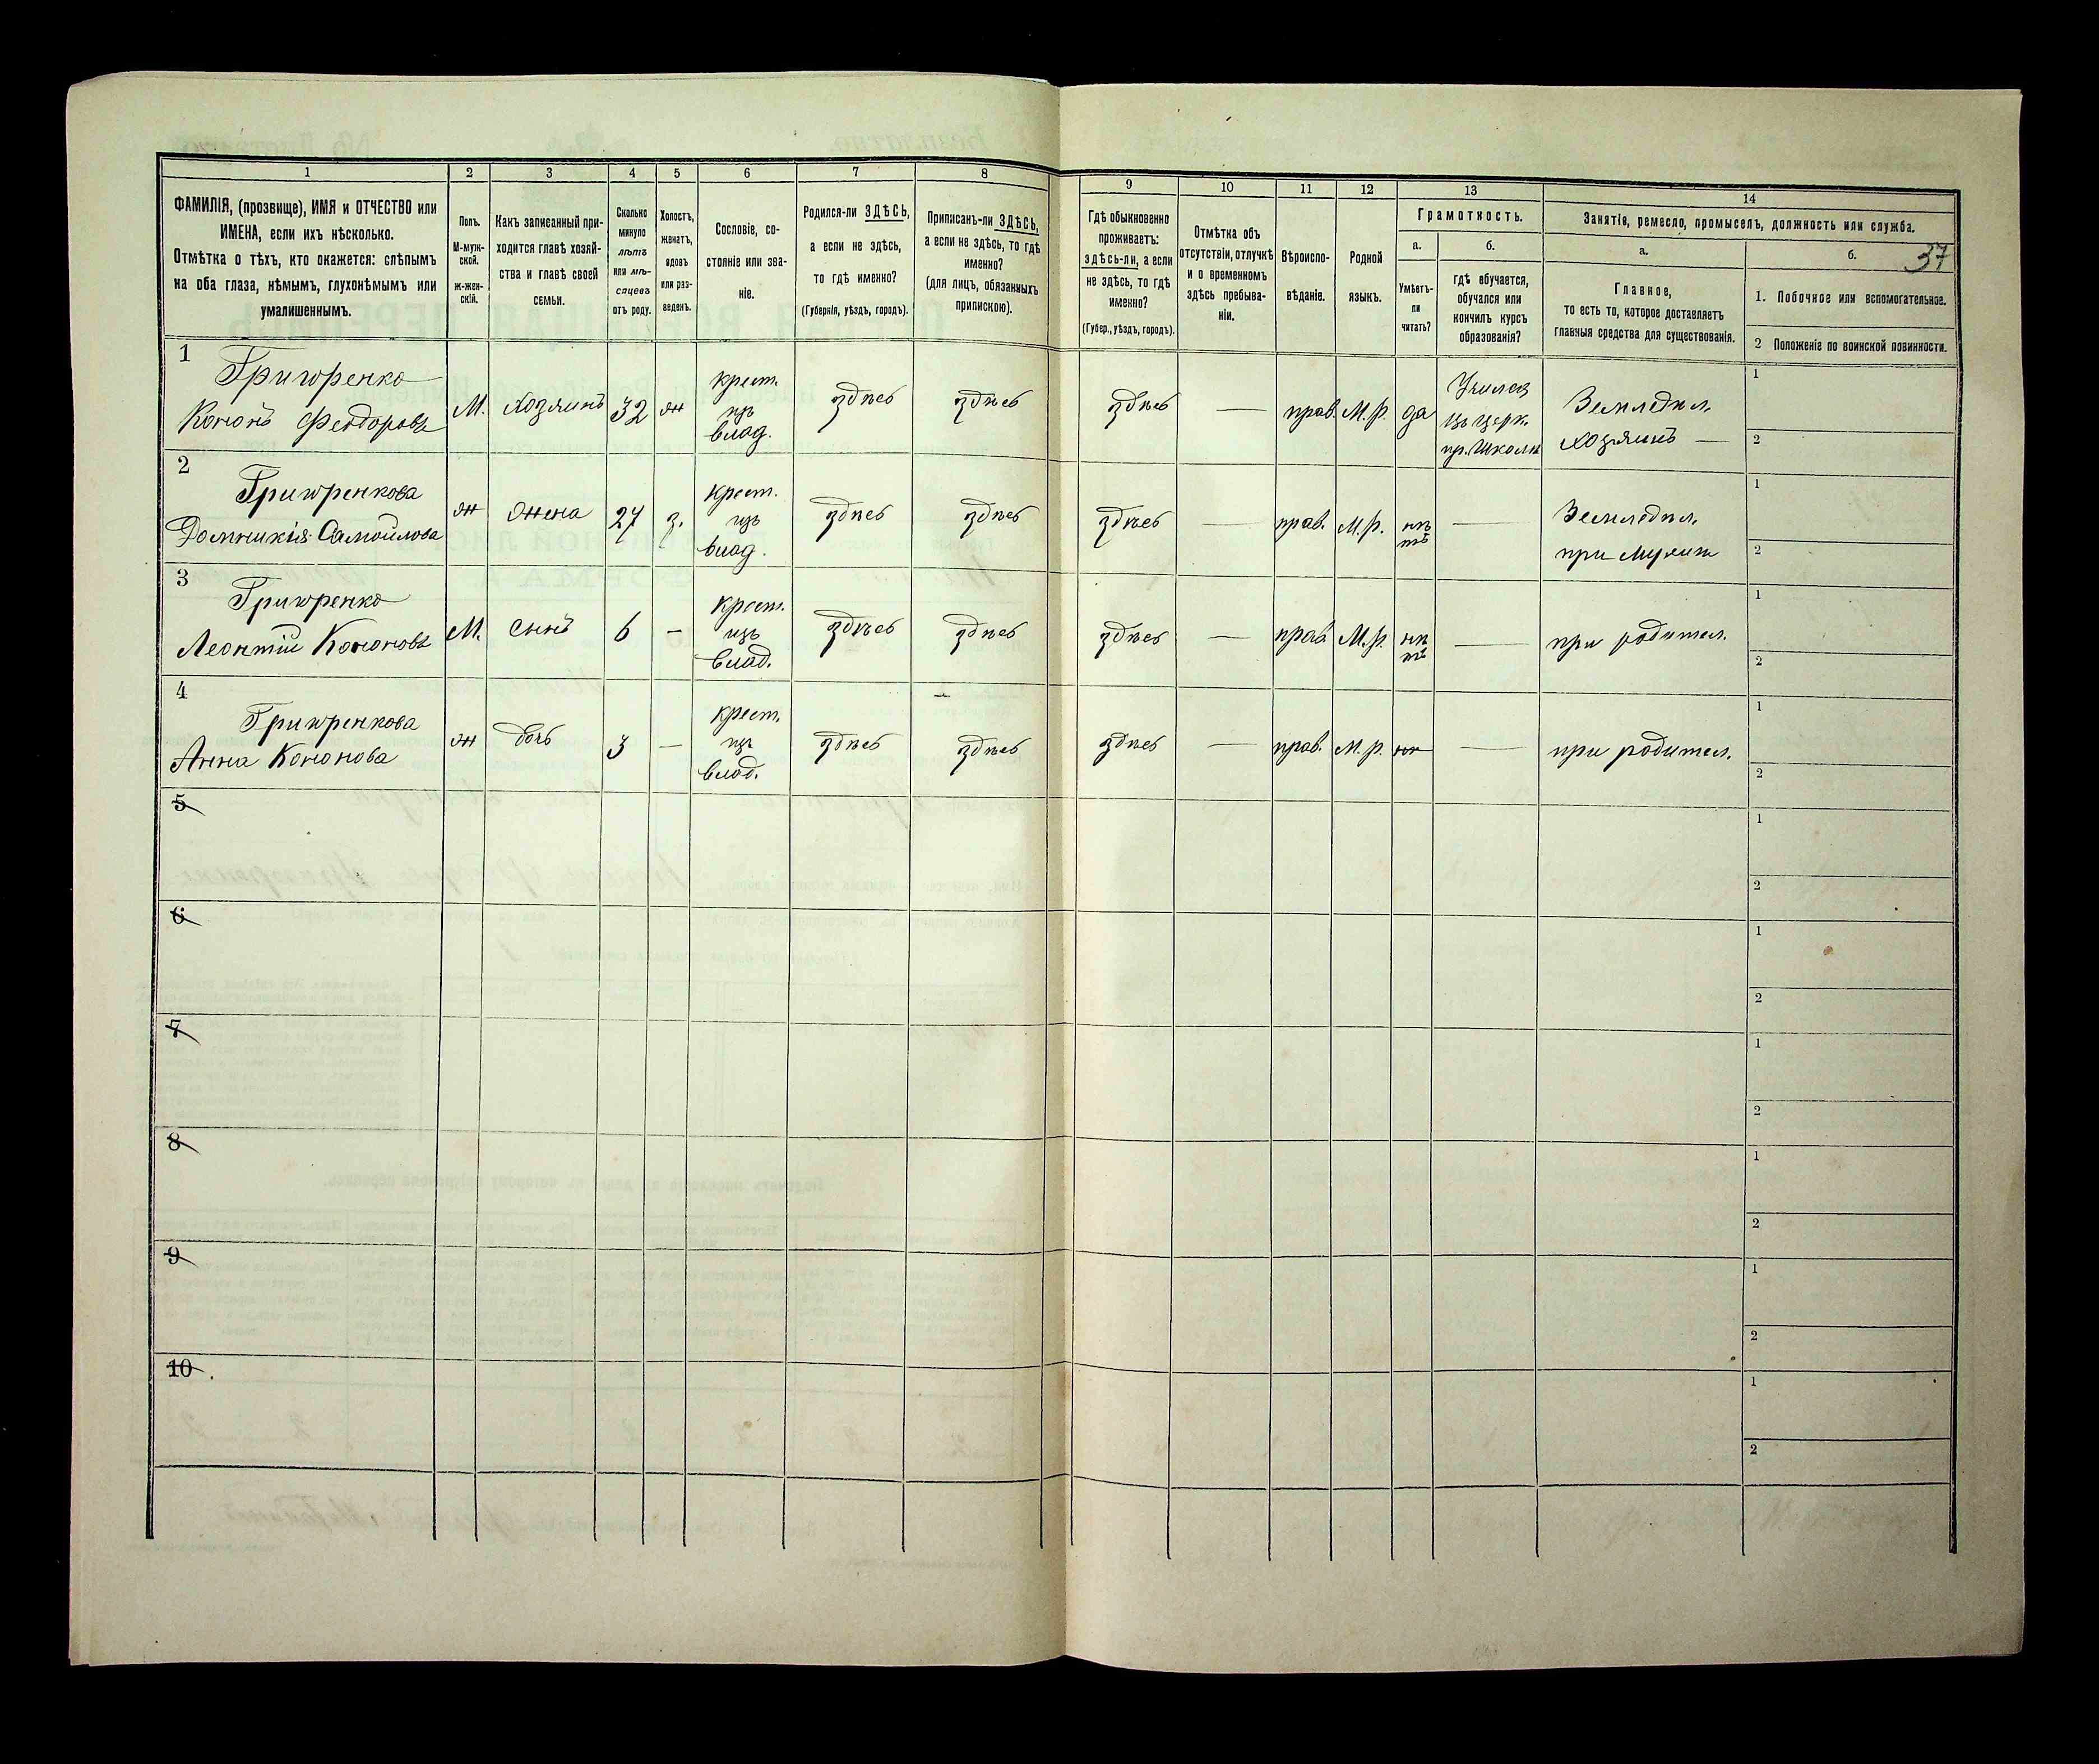 1 2 3 4 5 6 7 8 9 10 11 12 13 14
ФАМИЛІЯ, (прозвище), ИМЯ и ОТЧЕСТВО или
ИМЕНА, если ихъ нѣсколько.
Отмѣтка о тѣхъ, кто окажется: слѣпымъ
на оба глаза, нѣмымъ, глухонѣмымъ или
умалишеннымъ.
Полъ.
М-муж-
ской.
ж-жен-
скій.
Какъ записанный при-
ходится главѣ хозяй-
ства и главѣ своей
семьи.
Сколько
минуло
лѣтъ
или мѣ-
сяцевъ
отъ роду.
Холостъ,
женатъ,
вдовъ
или раз-
веденъ.
Сословіе, со-
стояніе или зва-
ніе.
Родился-ли ЗДѢСЬ,
а если не здѣсь,
то гдѣ именно?
(Губернія, уѣздъ, городъ).
Приписанъ-ли ЗДѢСЬ,
а если не здѣсь, то гдѣ
именно?
(для лицъ, обязанныхъ
припискою).
Гдѣ обыкновенно
проживаетъ:
здѣсь-ли, а если
не здѣсь, то гдѣ
именно?
(Губер., уѣздъ, городъ).
Отмѣтка объ
отсутствіи, отлучкѣ
и о временномъ
здѣсь пребыва-
ніи.
Вѣроиспо-
вѣданіе.
Родной
языкъ.
Грамотность.
а.
Умѣетъ-
ли
читать?
б.
гдѣ обучается,
обучался или
кончилъ курсъ
образованія?
Занятія, ремесло, промыселъ, должность или служба.
а.
Главное,
то есть то, которое доставляетъ
главныя средства для существованія.
б. 37
1. Побочное или вспомогательное.
2 Положеніе по воинской повинности.
1 Григоренко
Кононъ Феодоровъ М. хозяинъ 32 ж крест. изъ влад. здѣсь здѣсь здѣсь — прав. М.р. да Училса въ церк. пр. Школѣ Земледѣл. хозяинъ — 1 2
2 Григоренкова
Домникія Самойлова ж жена 27 з. крест. изъ влад. здѣсь здѣсь здѣсь — прав. М.р. нѣтъ — Земледѣл. при мужѣ 1 2
3 Григоренко
Леонтій Кононовъ М. сынъ 6 — крест. изъ влад. здѣсь здѣсь здѣсь — прав М.р. нѣтъ — при родител. 1 2
4 Григоренкова
Анна Кононова ж дочь 3 — крест. изъ влад. здѣсь здѣсь здѣсь — прав. М.р. — при родител. 1 2
5 1 2
6 1 2
7 1 2
8 1 2
9 1 2
10 1 2